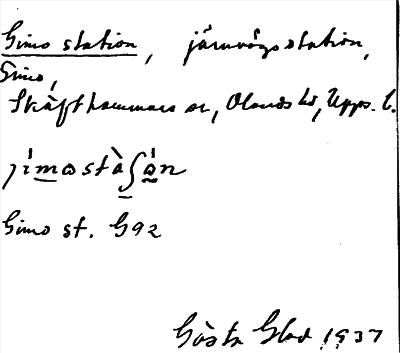 Gimo station, järnvägsstation,
Gimo,
Skäfthammars sn, Olands hd, Upps. l.
jimostàʃón
Gimo st. G92
Gösta Glad 1937